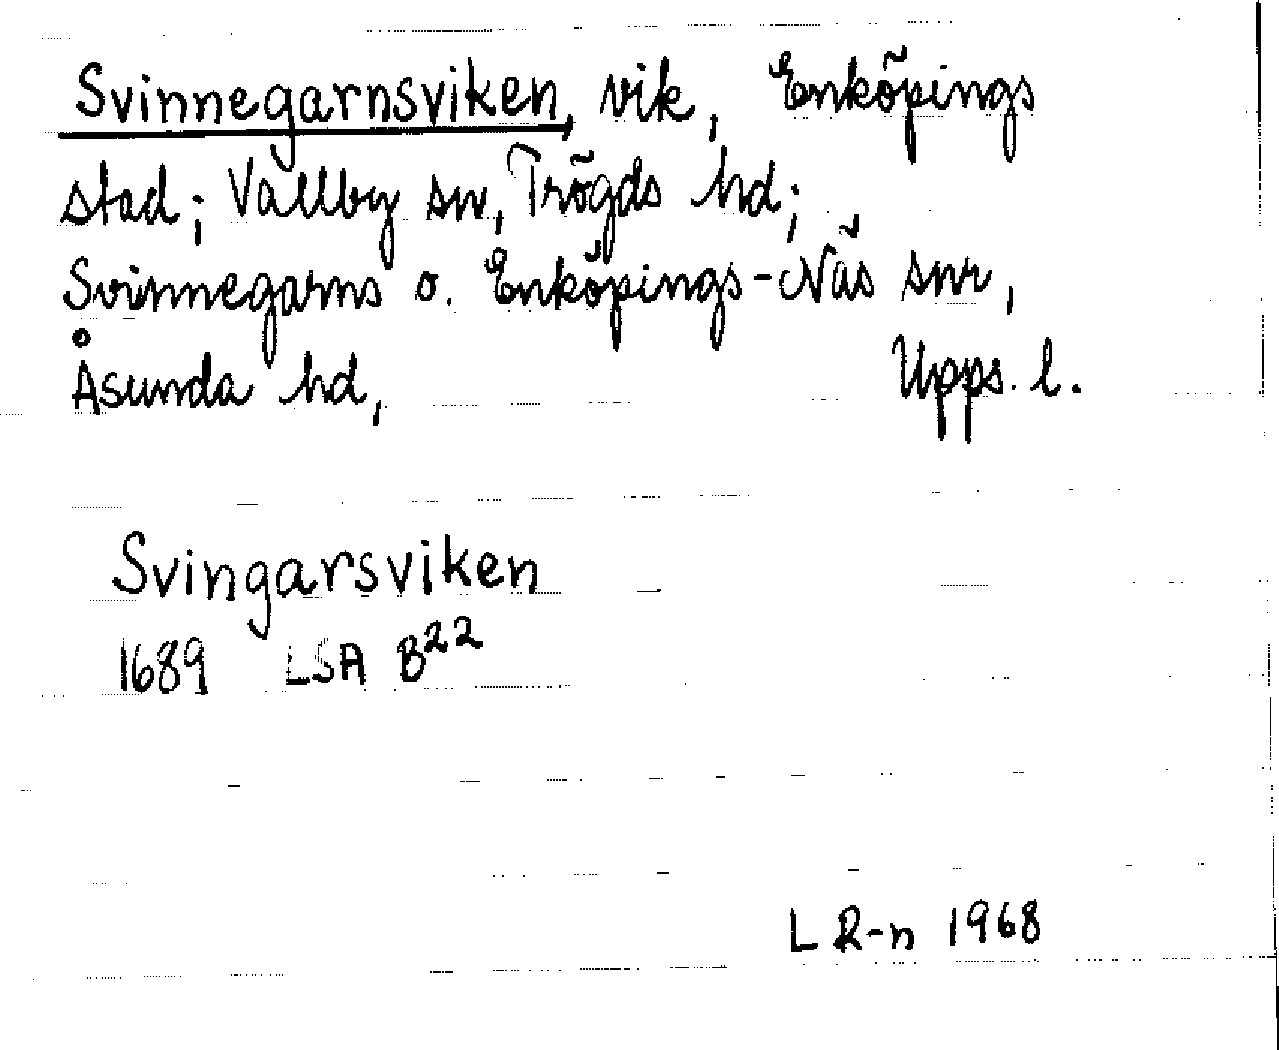 Svinnegarnsviken, vik, Enköpings
stad; Vallby sn, Trögds hd;
Svinnegarns o. Enköpings-Näs snr,
Åsunda hd, Upps. l.
Svingarsviken
1689 LSA B²²
L R-n 1968